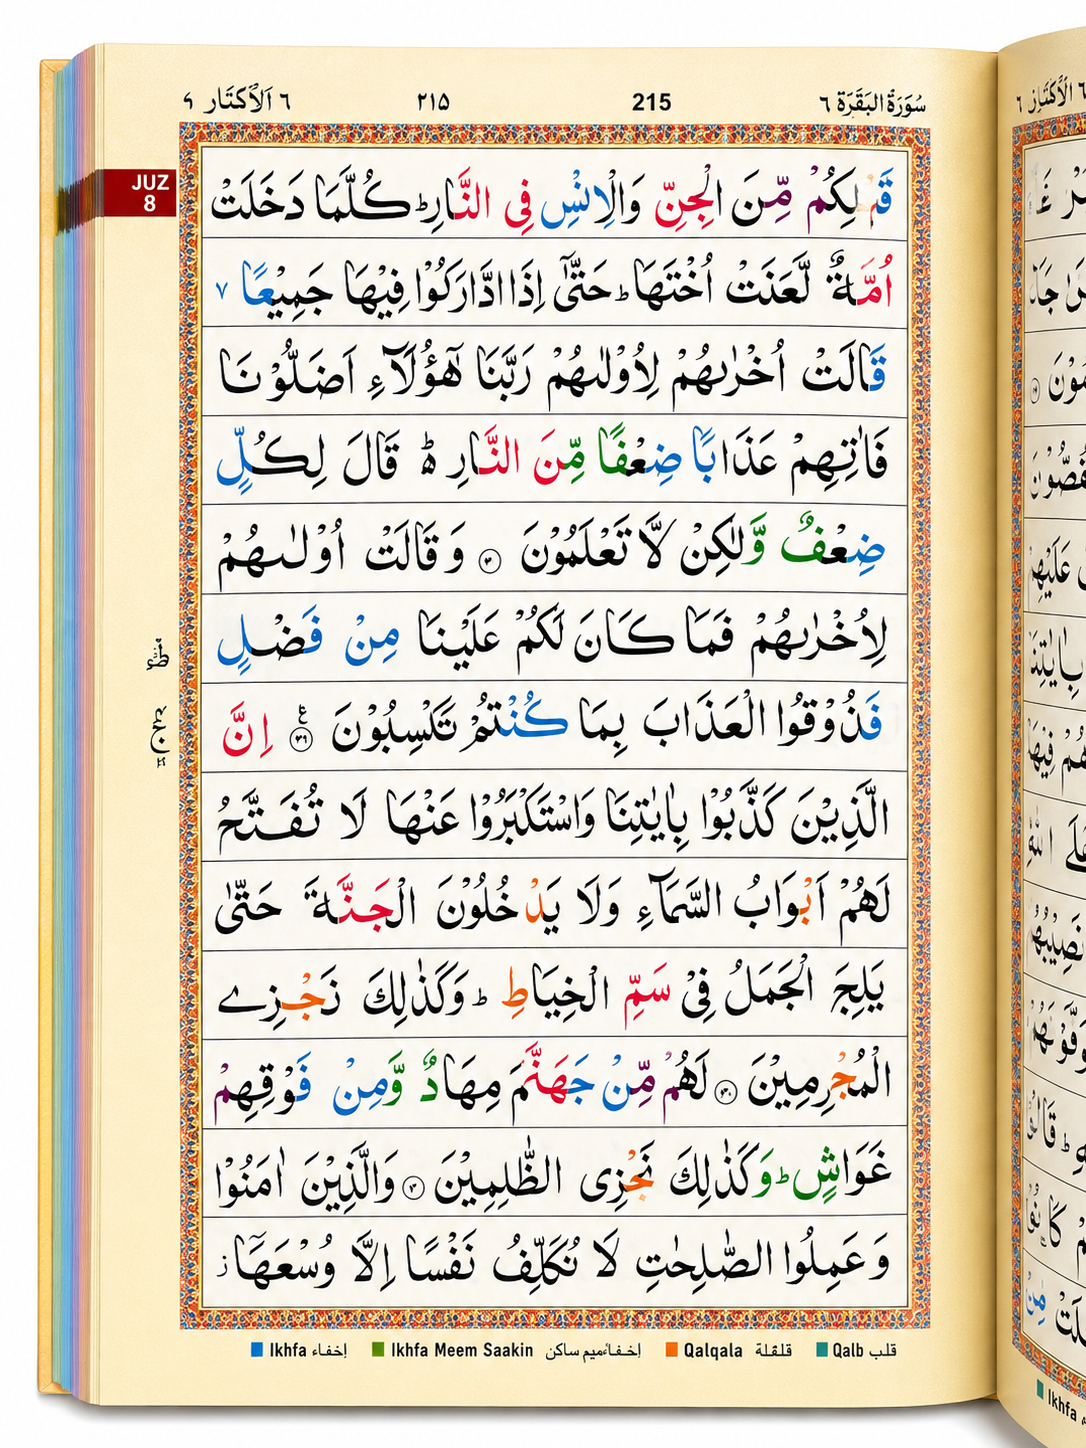 سُوْرَةُ الْبَقَرَة ٦ 215 ٢١٥ ٦
JUZ
8
لِكُمْ مِّنَ الْجِنِّ وَالْاِنْسِ فِي النَّارِ ؕ كُلَّمَا دَخَلَتْ
اُمَّةٌ لَّعَنَتْ اُخْتَهَا ؕ حَتّٰٓى اِذَا ادَّارَكُوْا فِيْهَا جَمِيْعًا ٧
قَالَتْ اُخْرٰىهُمْ لِاُوْلٰىهُمْ رَبَّنَا هٰٓؤُلَآءِ اَضَلُّوْنَا
فَاٰتِهِمْ عَذَابًا ضِعْفًا مِّنَ النَّارِ ؕ قَالَ لِكُلٍّ
ضِعْفٌ وَّلٰكِنْ لَّا تَعْلَمُوْنَ وَقَالَتْ اُوْلٰىهُمْ
لِاُخْرٰىهُمْ فَمَا كَانَ لَكُمْ عَلَيْنَا مِنْ فَضْلٍ
فَذُوْقُوا الْعَذَابَ بِمَا كُنْتُمْ تَكْسِبُوْنَ ٣٩ ع اِنَّ
الَّذِيْنَ كَذَّبُوْا بِاٰيٰتِنَا وَاسْتَكْبَرُوْا عَنْهَا لَا تُفَتَّحُ
لَهُمْ اَبْوَابُ السَّمَآءِ وَلَا يَدْخُلُوْنَ الْجَنَّةَ حَتّٰى
يَلِجَ الْجَمَلُ فِيْ سَمِّ الْخِيَاطِ ؕ وَكَذٰلِكَ نَجْزِے
الْمُجْرِمِيْنَ لَهُمْ مِّنْ جَهَنَّمَ مِهَادٌ وَّمِنْ فَوْقِهِمْ
غَوَاشٍ ؕ وَكَذٰلِكَ نَجْزِى الظّٰلِمِيْنَ وَالَّذِيْنَ اٰمَنُوْا
وَعَمِلُوا الصّٰلِحٰتِ لَا نُكَلِّفُ نَفْسًا اِلَّا وُسْعَهَآ ز
Ikhfa إخفاء Ikhfa Meem Saakin إخفاء ميم ساكن Qalqala قلقلة Qalb قلب